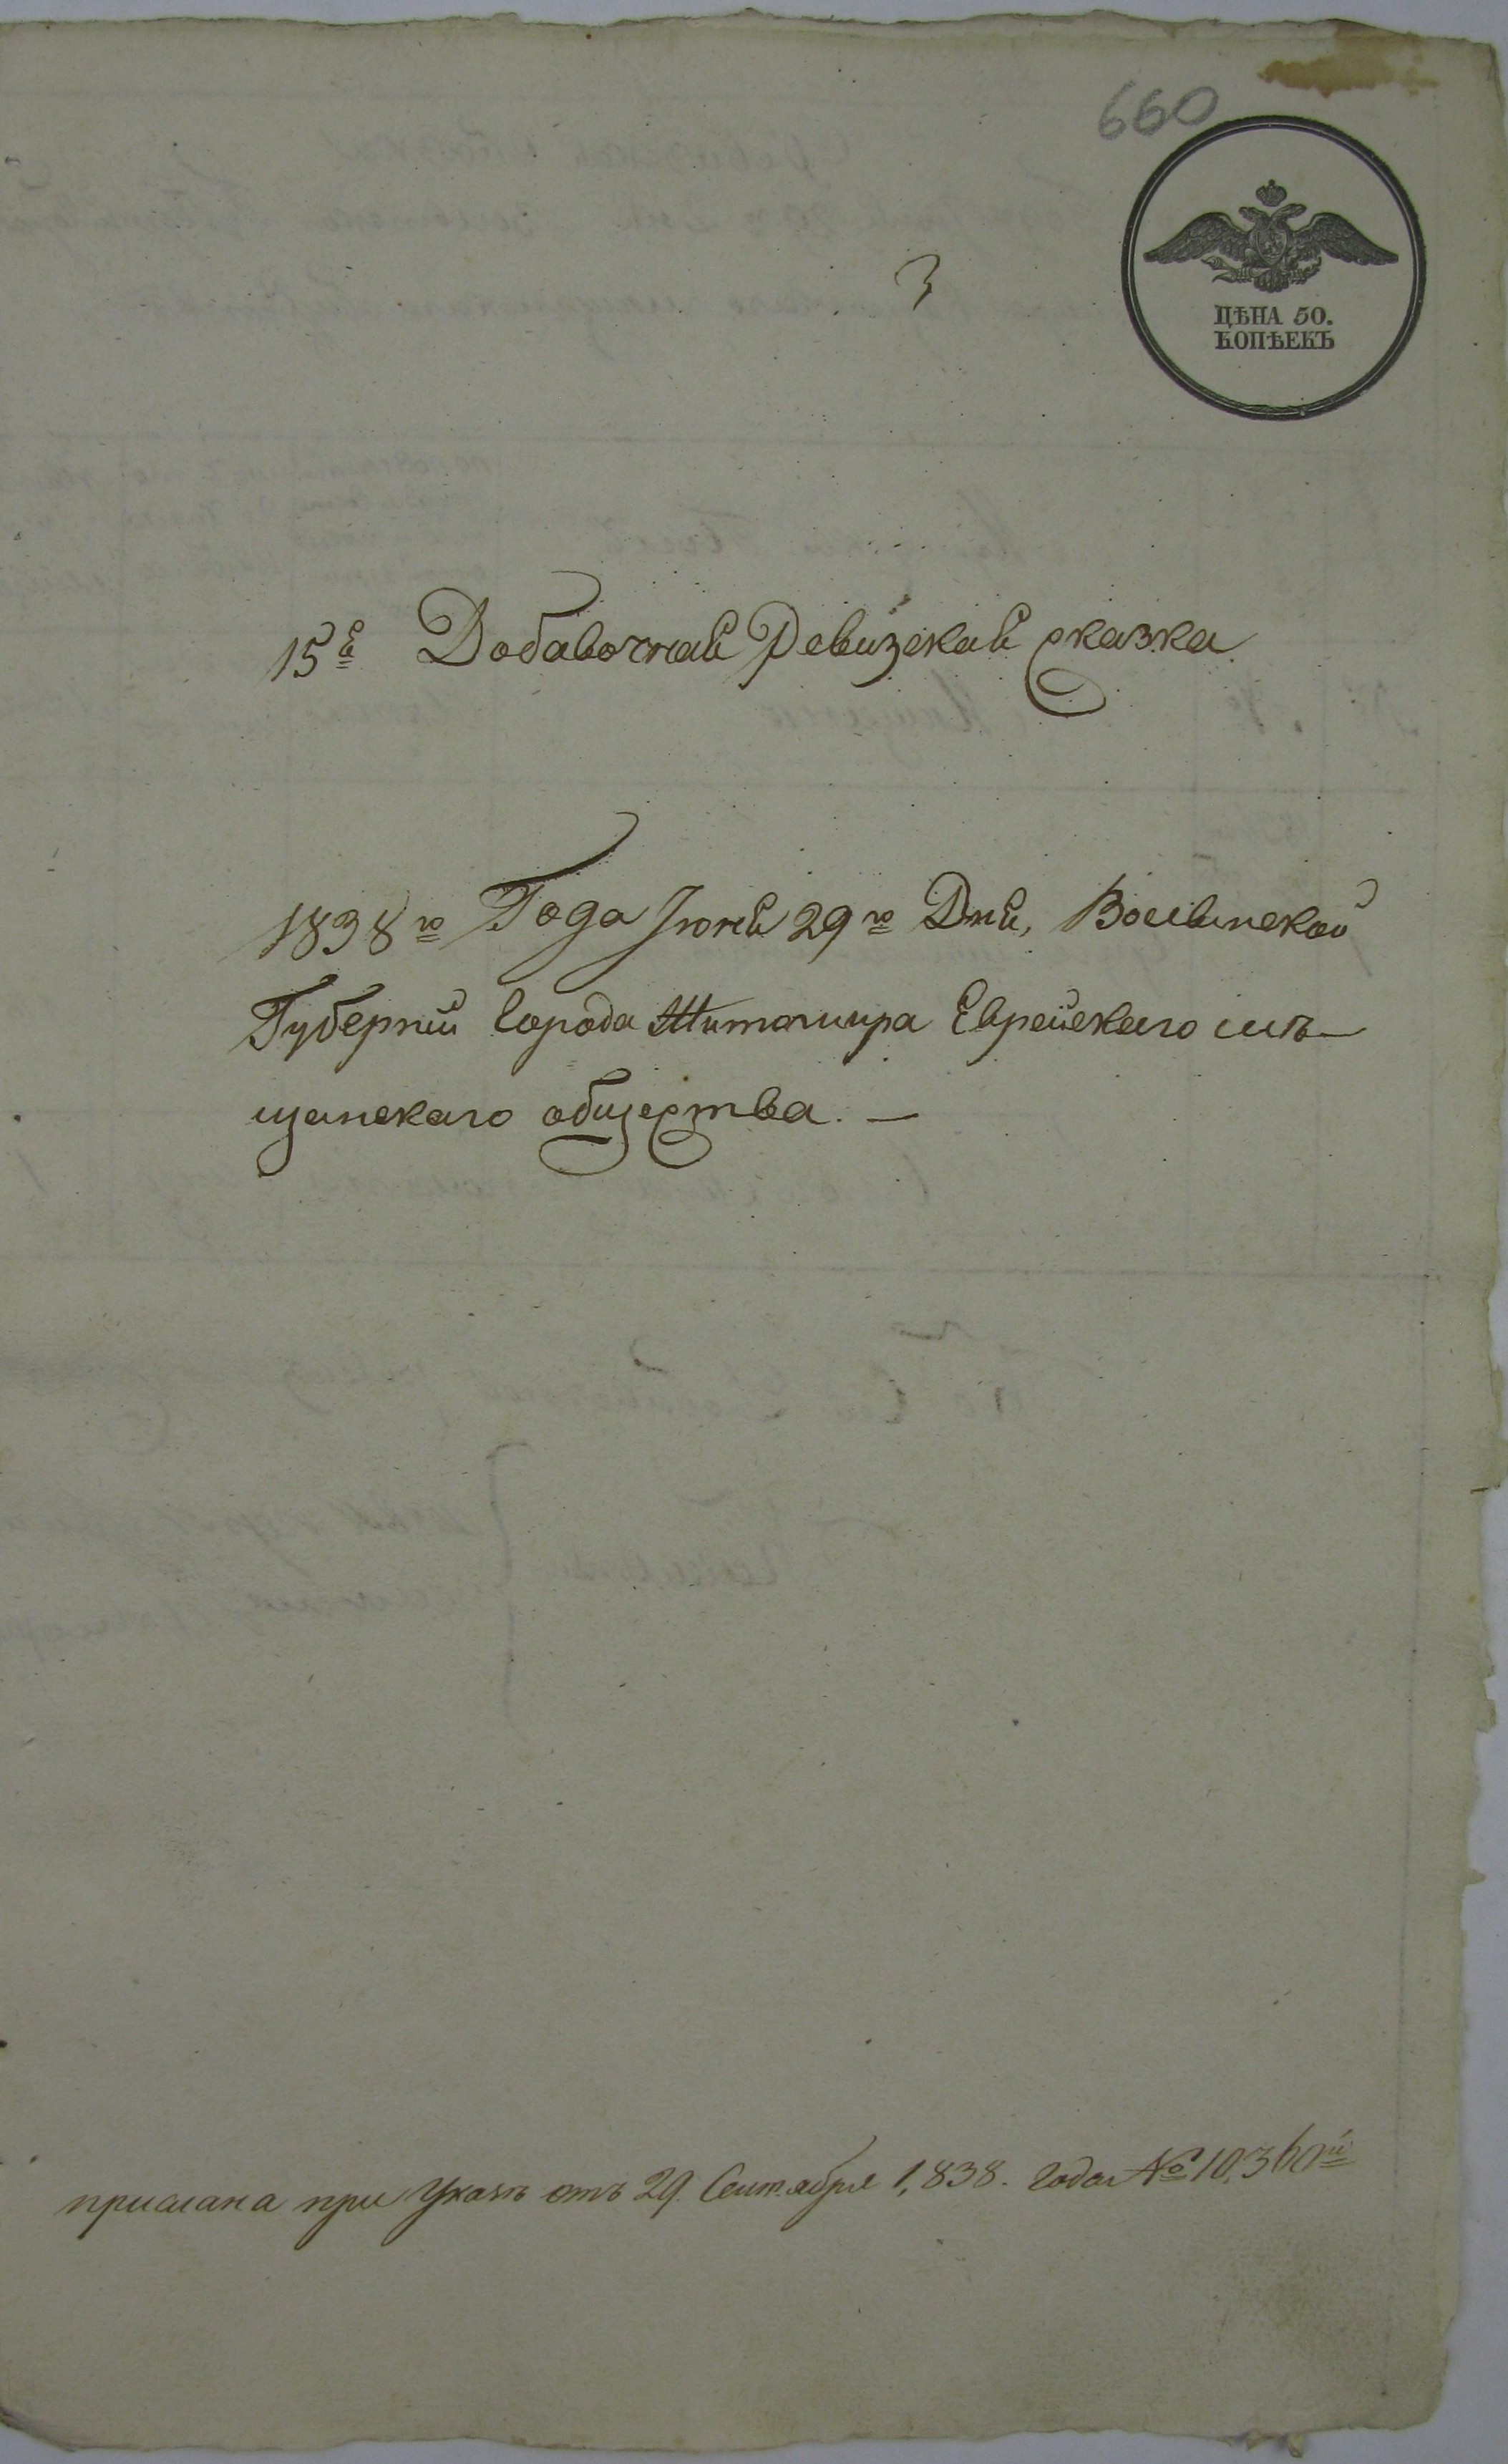 660
3
ЦѢНА 50.
КОПѢЕКЪ
15я Добавочная Ревизская сказка.
1838го Года Іюня 29го Дня, Волынской
Губерніи Города Житомира Еврейскаго мѣ-
щанскаго общества. —
прислана при Указѣ отъ 29. Сентября 1,838. года № 10,360й